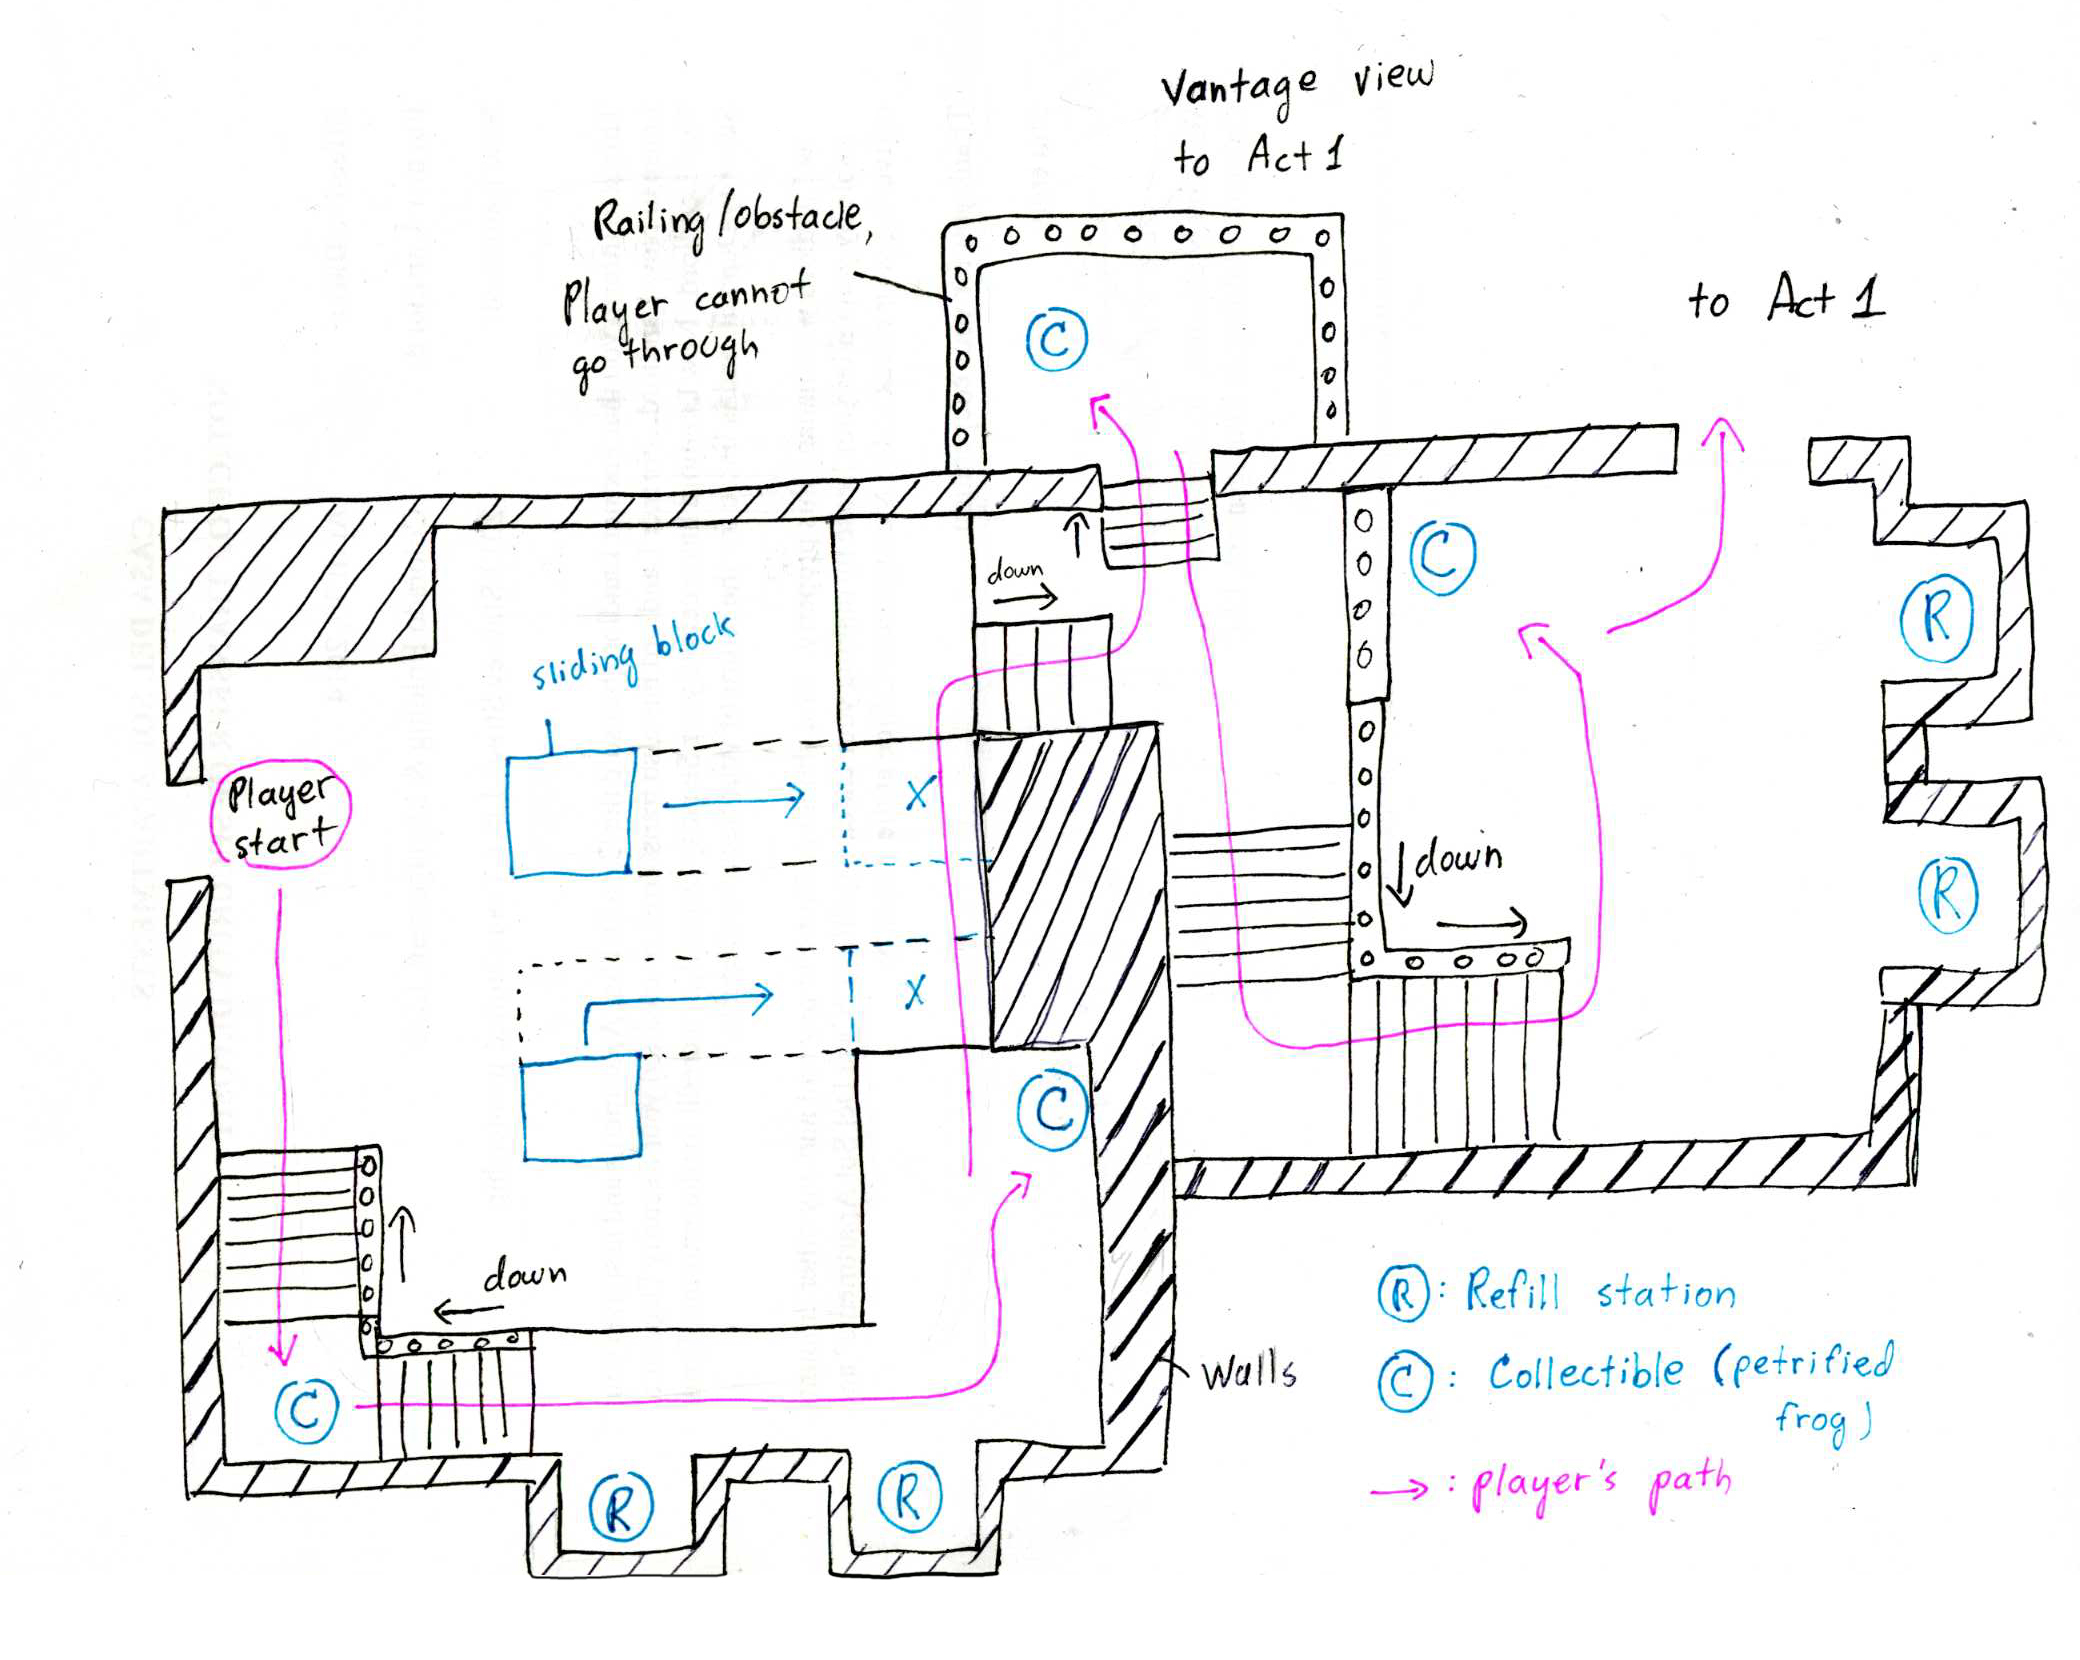 Vantage view
to Act 1
Railing/obstacle,
Player cannot
go through
to Act 1
C
C
R
down
sliding block
Player
start
X
X
down
R
C
down
C
R
R
Walls
R : Refill station
C : Collectible (petrified
frog)
→ : player's path